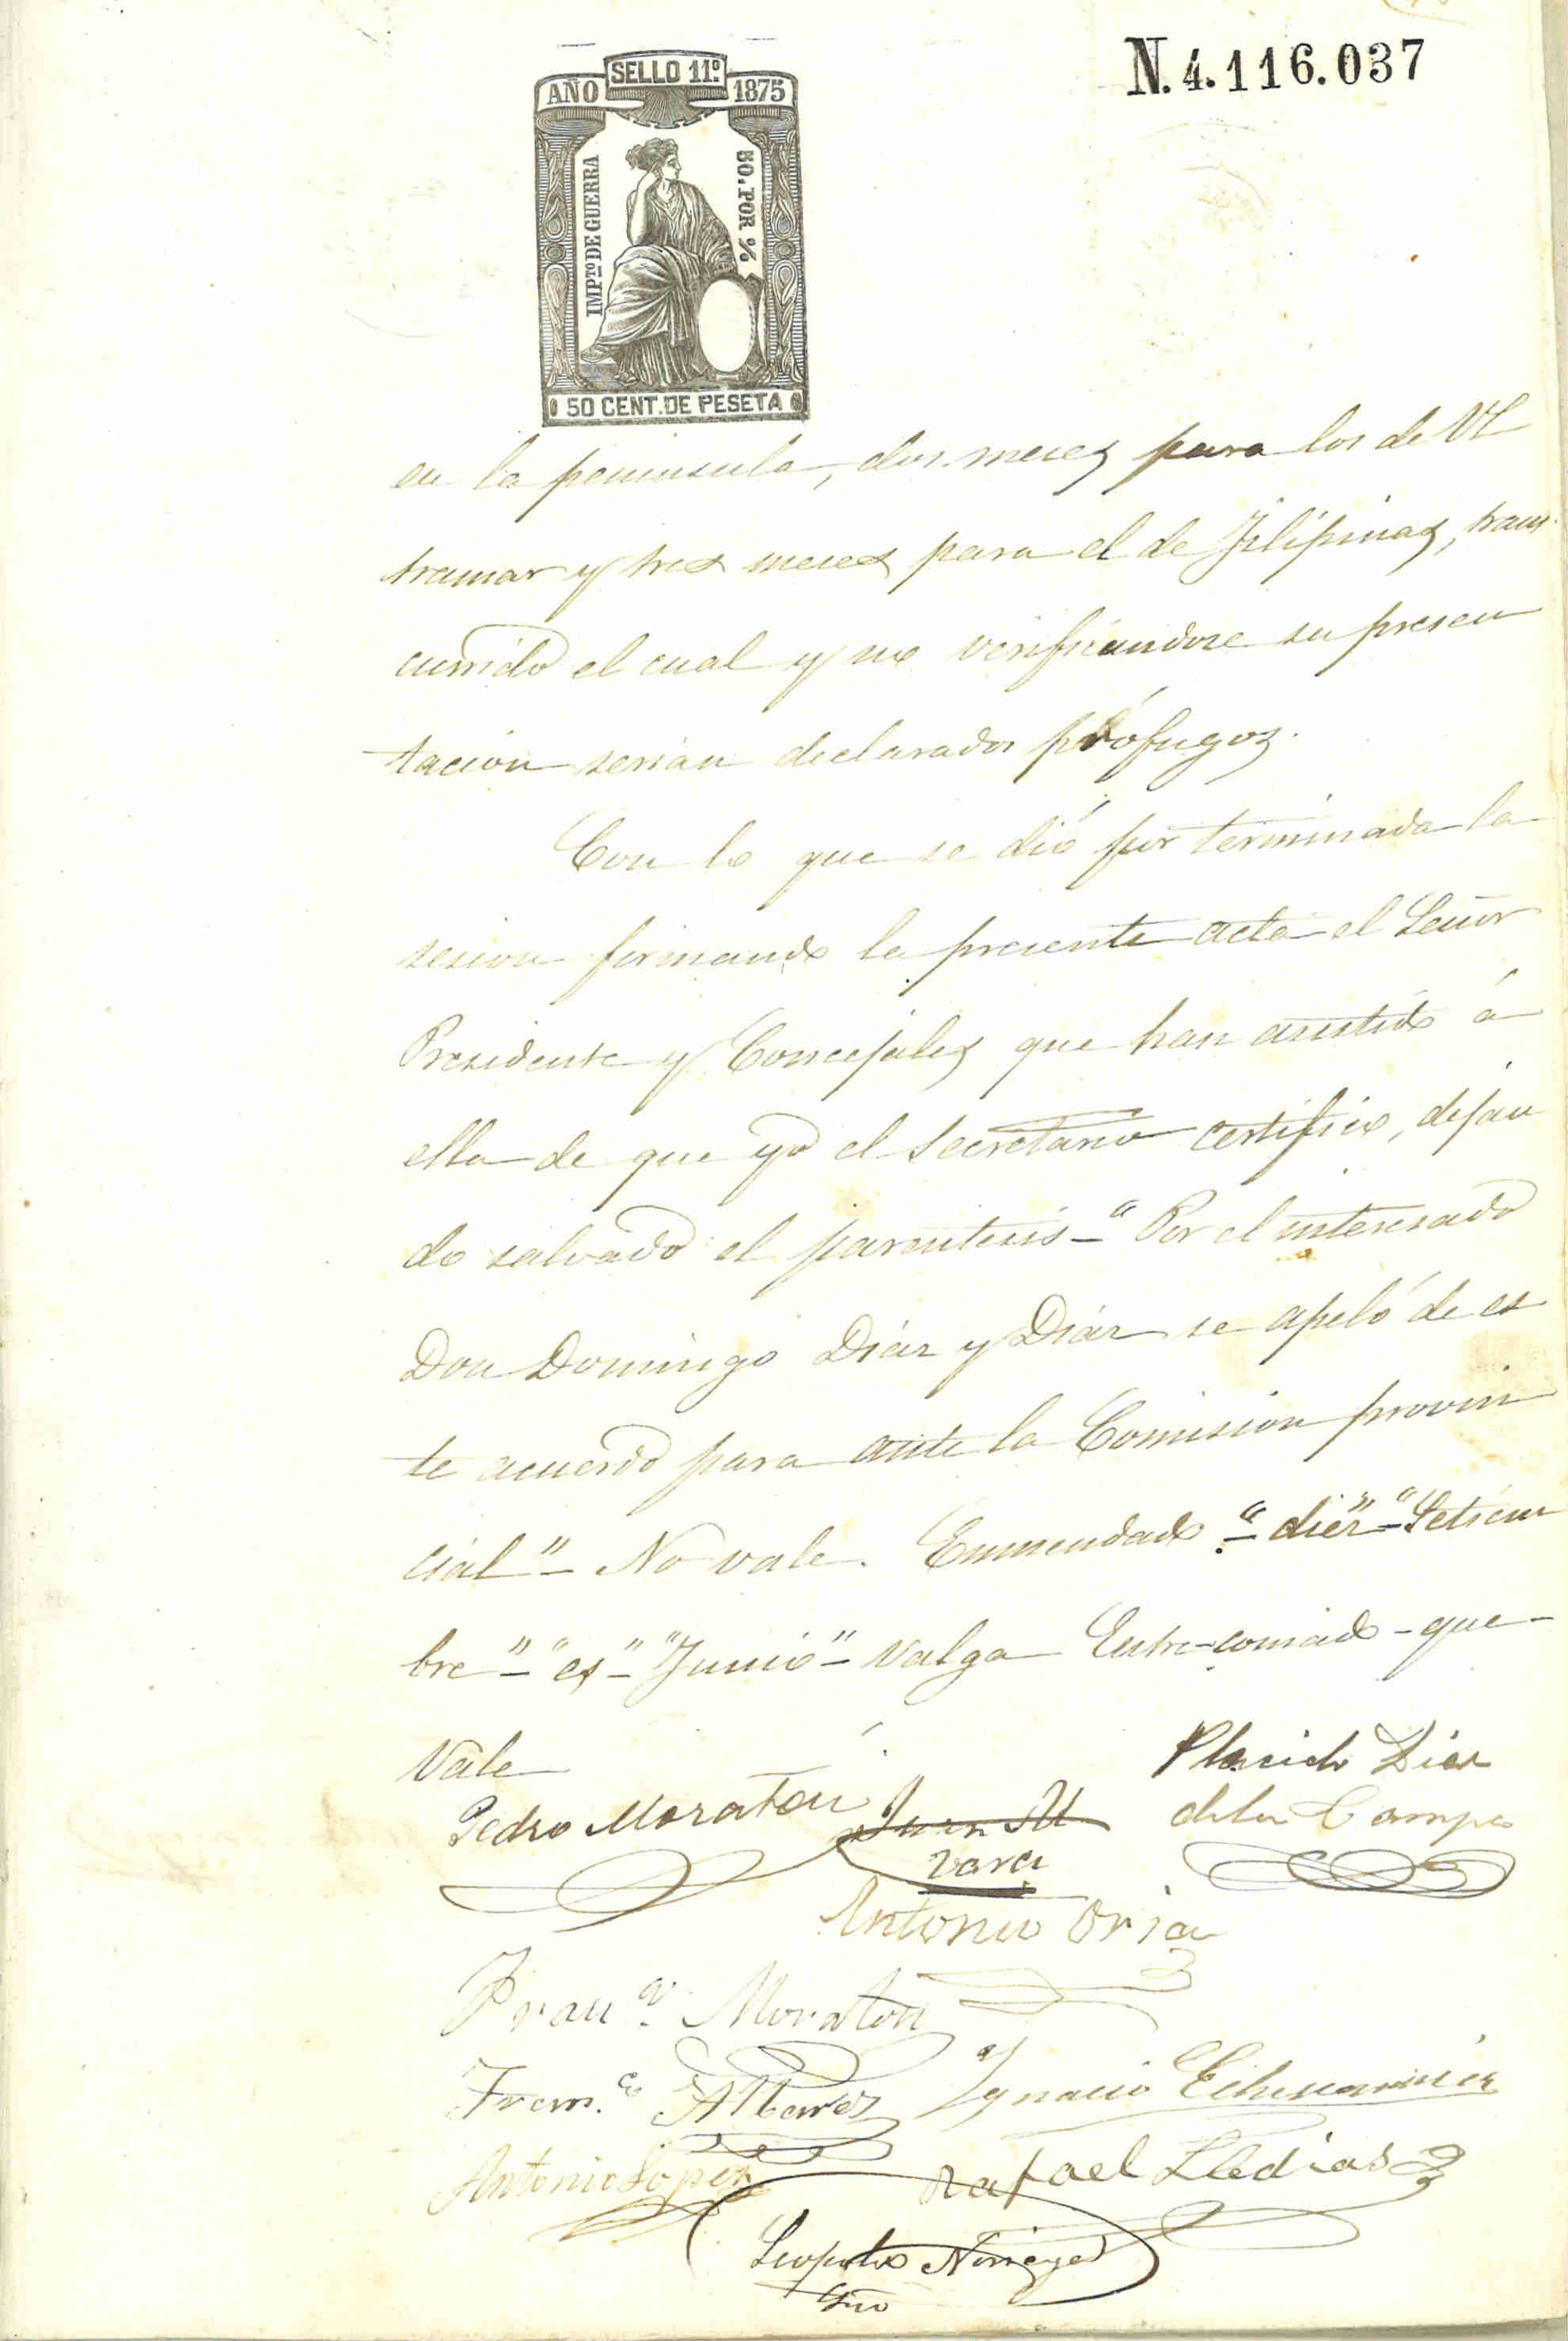 N. 4.116.037
SELLO 11º
AÑO 1875
IMPTO DE GUERRA
50. POR %
50 CENT. DE PESETA
en la peninsula, dos meses para los de Ul
tramar y tres meses para el de Filipinas, trans
currido el cual y no verificandose su presen
tacion serian declarados prófugos.
Con lo que se dió por terminada la
sesion firmando la presente acta el Señor
Presidente y Concejales que han asistido á
ella de que yo el Secretario certifico, dejan
do salvado el parentesis - "Por el interesado
Don Domingo Diáz y Diáz se apeló de es
te acuerdo para ante la Comision provin
cial" - No vale. Enmendado - "diez" - "Setiem
bre" - "es" - "Junio" - Valga Entre-comado - que -
Vale
Pedro Moraton
Juan Al
varez
Placido Diaz
de la Campa
Antonio Oria
Franco. Moraton
Franco. Alvarez
Ignacio Echevarria
Antonio Lopez
Rafael Lledias
Leopoldo Noriega
Srio